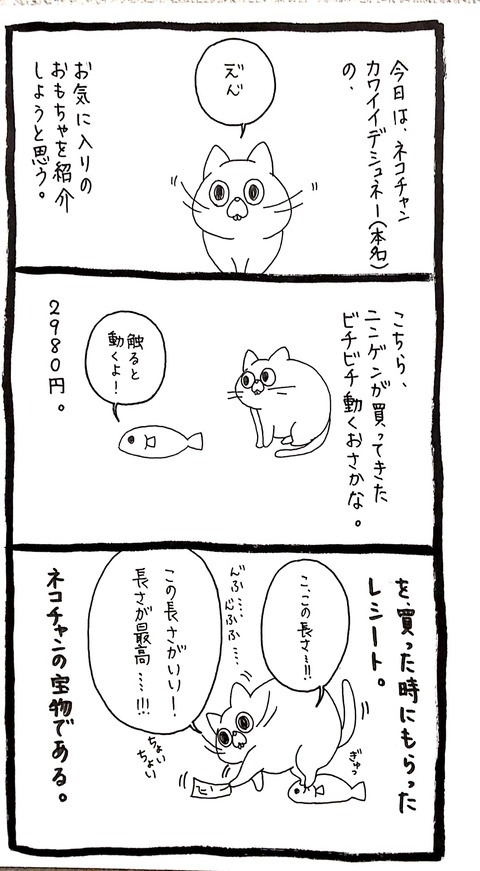 今日は、ネコチャン
カワイイデシュネー(本名)
の、
えん
お気に入りの
おもちゃを紹介
しようと思う。
こちら、
ニンゲンが買ってきた
ビチビチ動くおさかな。
触ると
動くよ!
2980円。
を、買った時にもらった
レシート。
こ、この長さ…!!
んふ…、んふふ…
この長さがいい!
長さが最高……!!!
ちょい
ちょい
ぎゅっ
ネコチャンの宝物である。